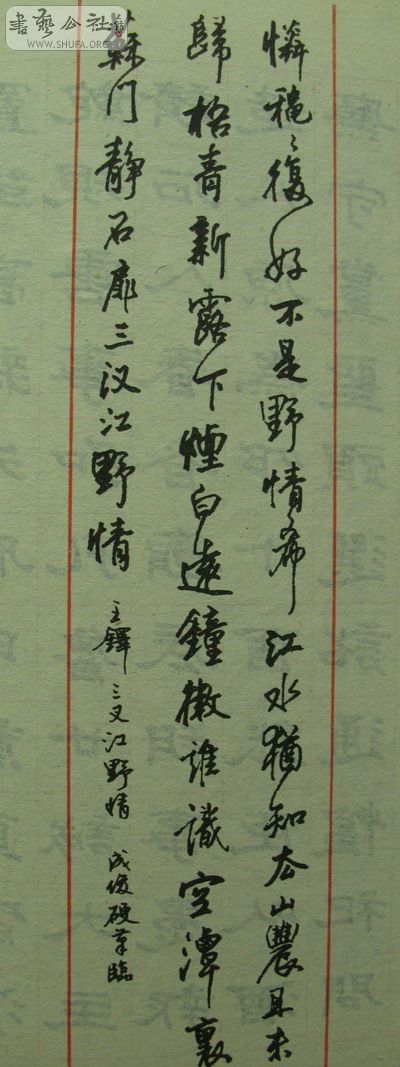 書藝公社
WWW.SHUFA.ORG
憐穐〻復好不是野情希江水猶知去山農且未
歸格青新露下煙白遠鐘微誰識空潭裏
蘇门静石扉三汊江野情
王鐸三叉江野情 成俊硬筆臨